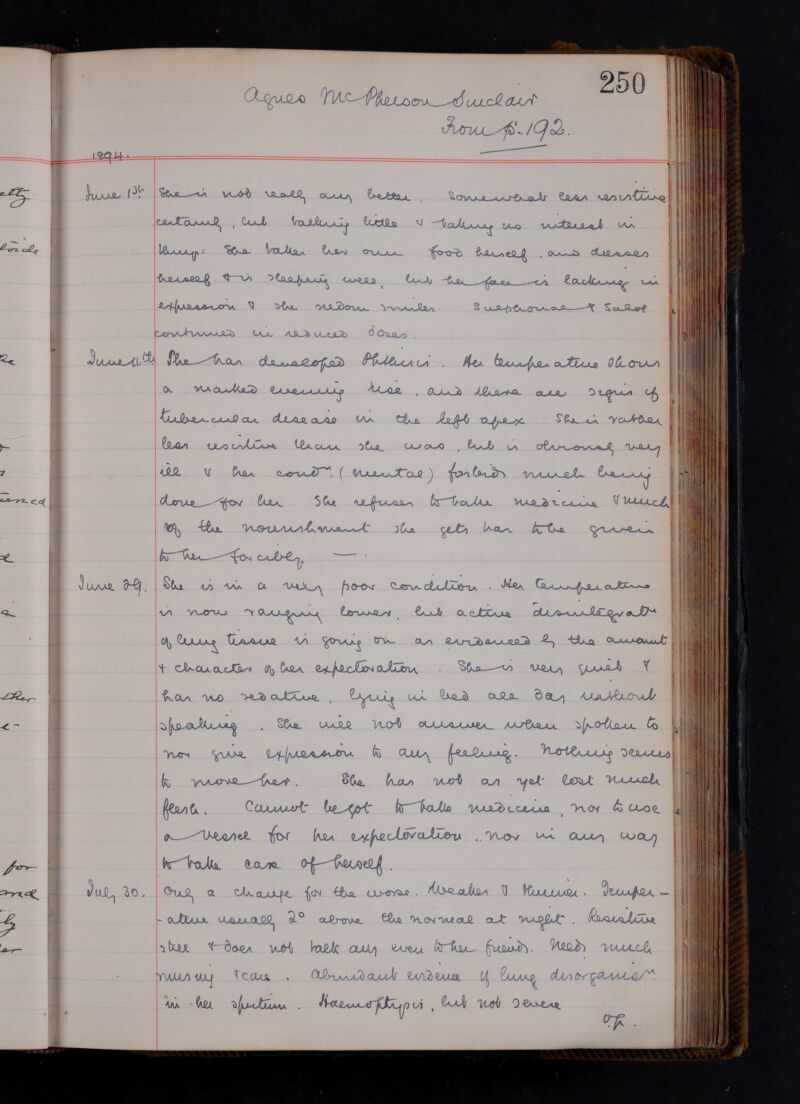 250
Agnes McPherson Sinclair
From p. 192.
1894.
June 1st She is not really any better. Somewhat less resistive
certainly, but talking little & taking no interest in
things. She takes her own food herself, and dresses
herself & is sleeping well, but her face is lacking in
expression & she seldom smiles. Sulphonal & Salol
continued in reduced doses.
June 11th She has developed Phthisis. Her temperature shows
a marked evening rise, and there are signs of
tubercular disease in the left apex. She is rather
less resistive than she was, but is obviously very
ill & her condn. (mental) forbids much being
done for her. She refuses to take medicine & much
of the nourishment she gets has to be given
to her forcibly. —.
June 29. She is in a very poor condition. Her temperature
is now ranging lower, but active disintegratn
of lung tissue is going on as evidenced by the amount
& character of her expectoration. She is very quiet &
has no sedative, lying in bed all day without
speaking. She will not answer when spoken to
nor give expression to any feeling. Nothing seems
to move her. She has not as yet lost much
flesh. Cannot be got to take medicine, nor to use
a vessel for her expectoration, nor in any way
to take care of herself.
July 30. Only a change for the worse. Weaker & thinner. Temper-
-ature usually 2° above the normal at night. Resistive
still & does not talk any even to her friends. Needs much
nursing & care. Abundant evidence of lung disorganisn.
in her sputum. Haemoptysis, but not severe